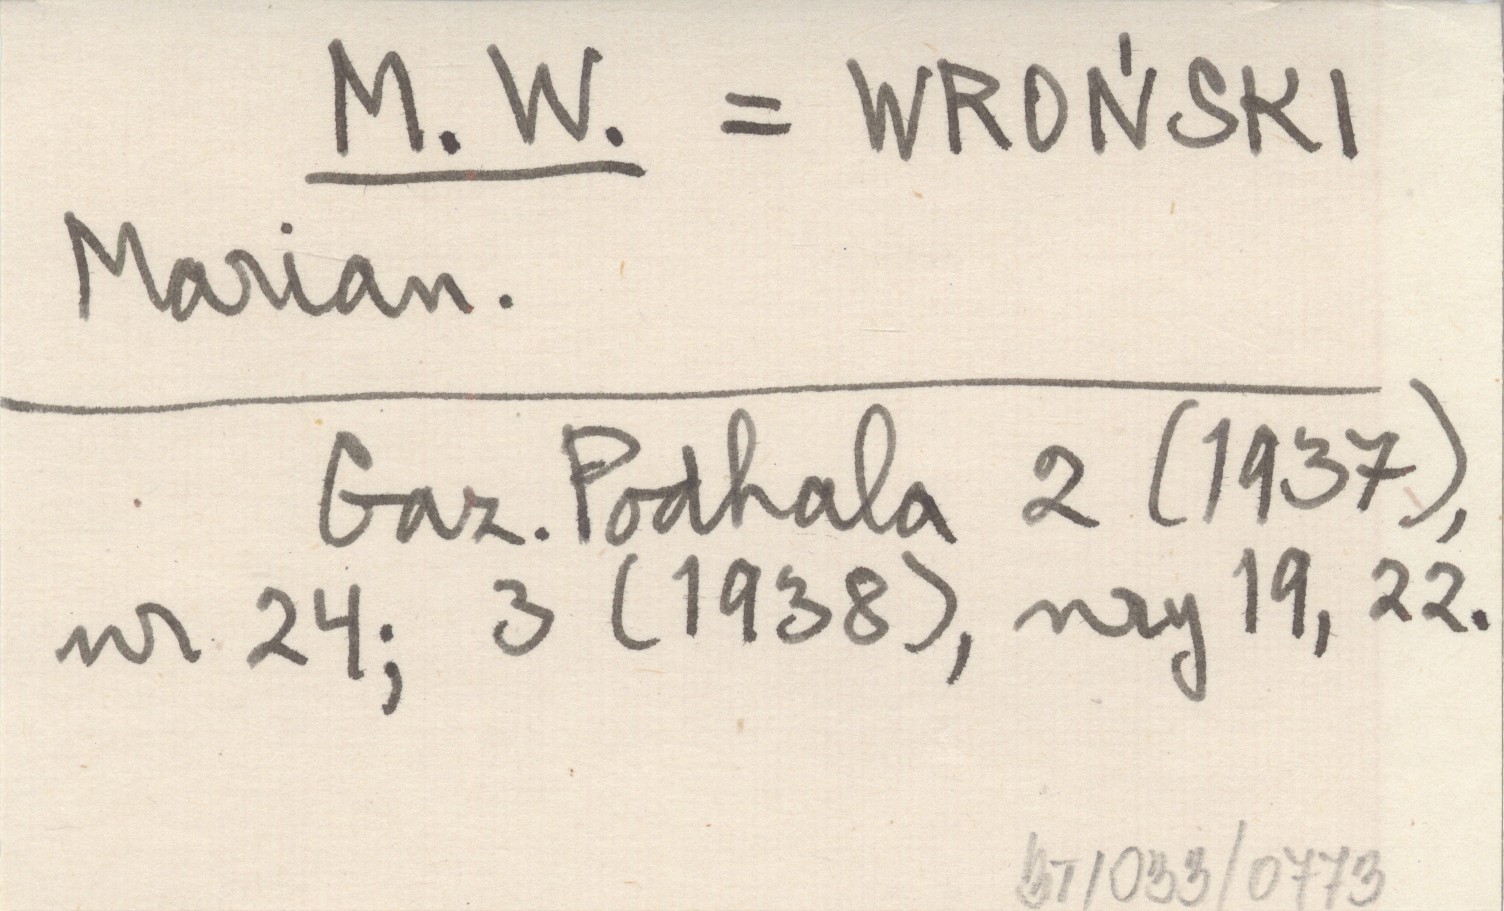 M. W. = WROŃSKI
Marian.
Gaz. Podhala 2 (1937),
nr 24; 3 (1938), nry 19, 22.
/033/0773